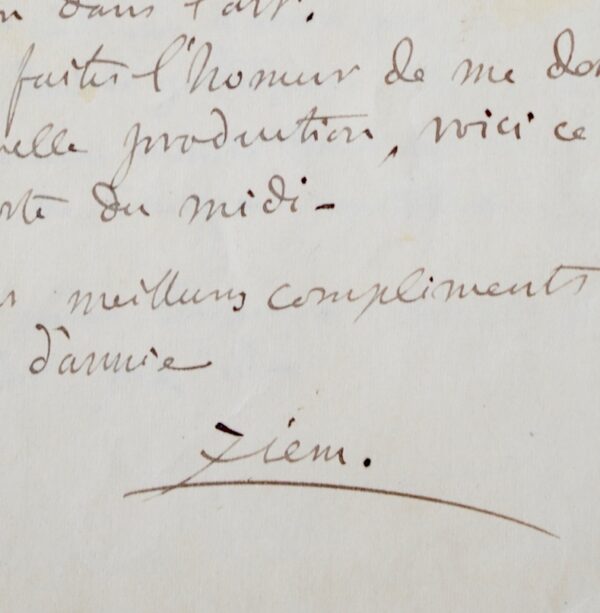 n dans l'art.
faites l'honneur de me don
elle production, voici ce
orte du midi-
s meilleurs compliments
d'année
Ziem.